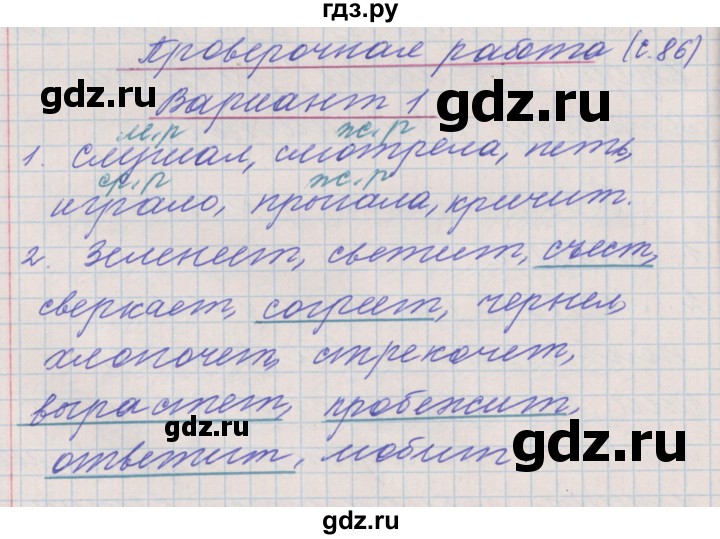 гдз.ру
Проверочная работа (с.86)
gdz.ru
gdz.ru
Вариант 1
м.р ж.р
1. Слушал, смотрела, петь,
ср.р ж.р
играло, прыгала, кричит.
2. Зеленеет, светит, съест,
сверкает, согреет, чернел,
хлопочет, стрекочет,
вырастет, пробежит,
gdz.ru
gdz.ru
ответит, любит
gdz.ru